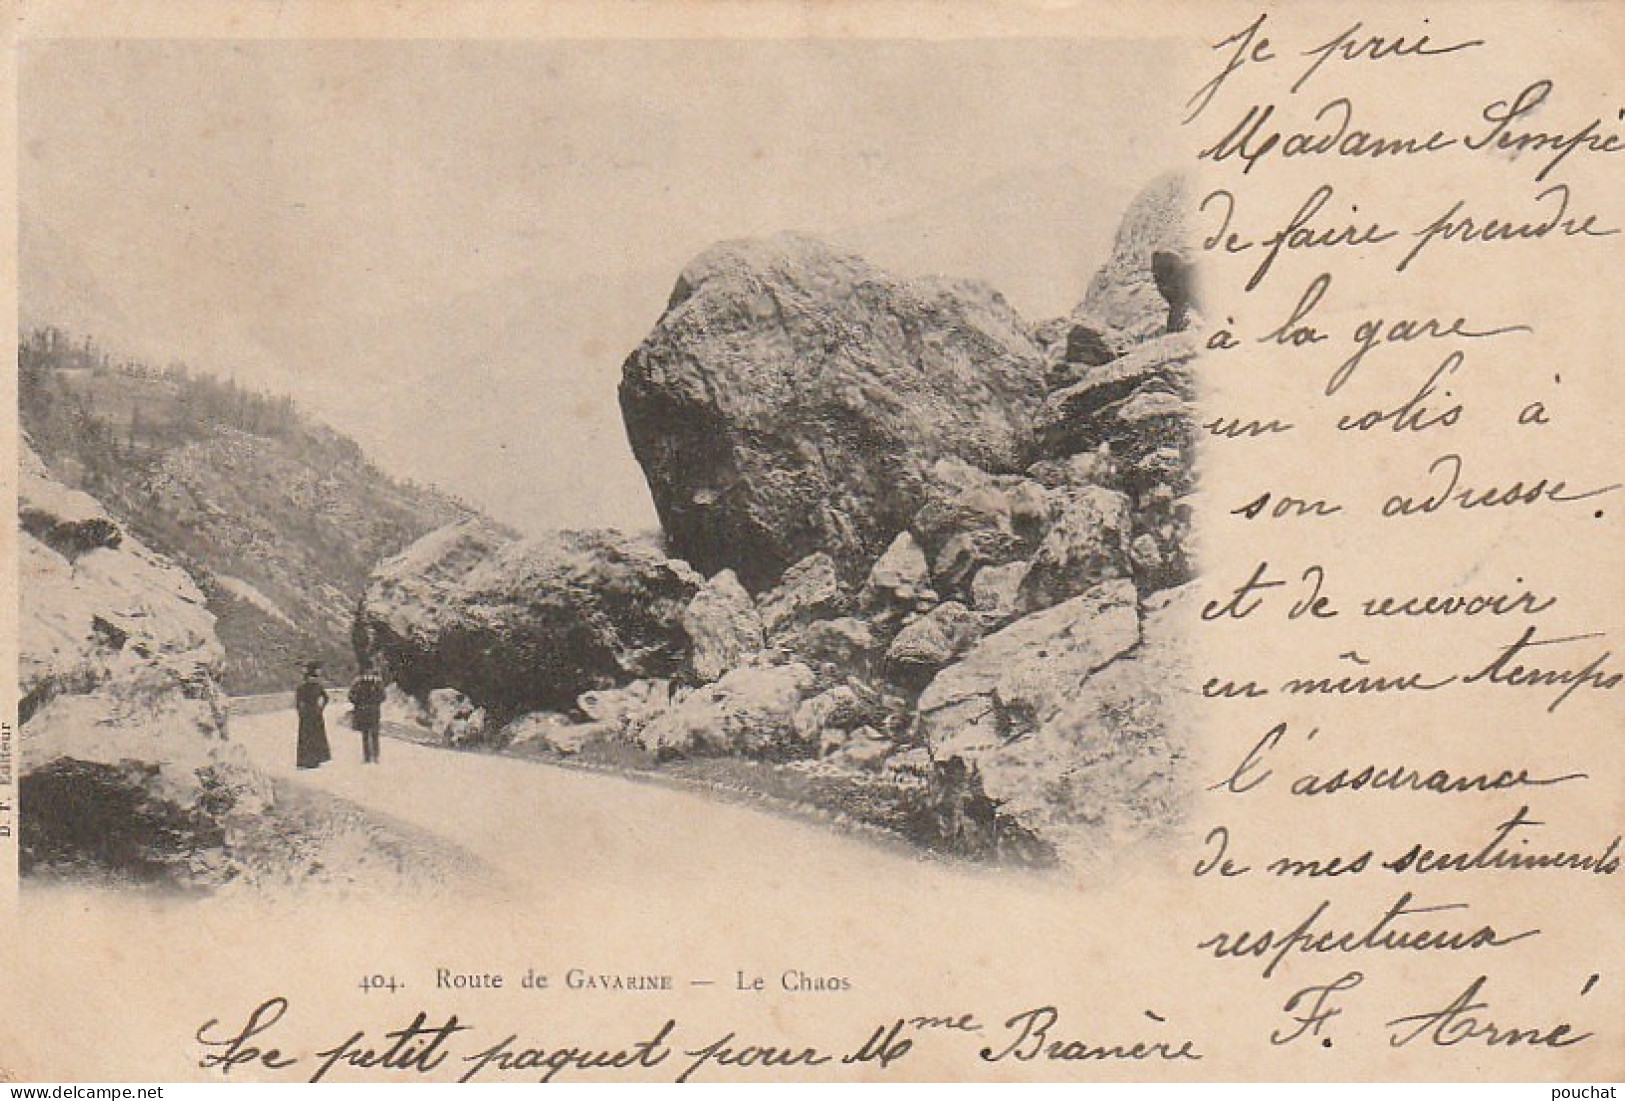 Je prie
Madame Sempé
de faire prendre
à la gare
un colis à
son adresse.
et de recevoir
en même temps
l'assurance
de mes sentiments
respectueux
F. Arné
D. F. Editeur
404. Route de GAVARINE — Le Chaos
Le petit paquet pour Mme Branère
pouchat